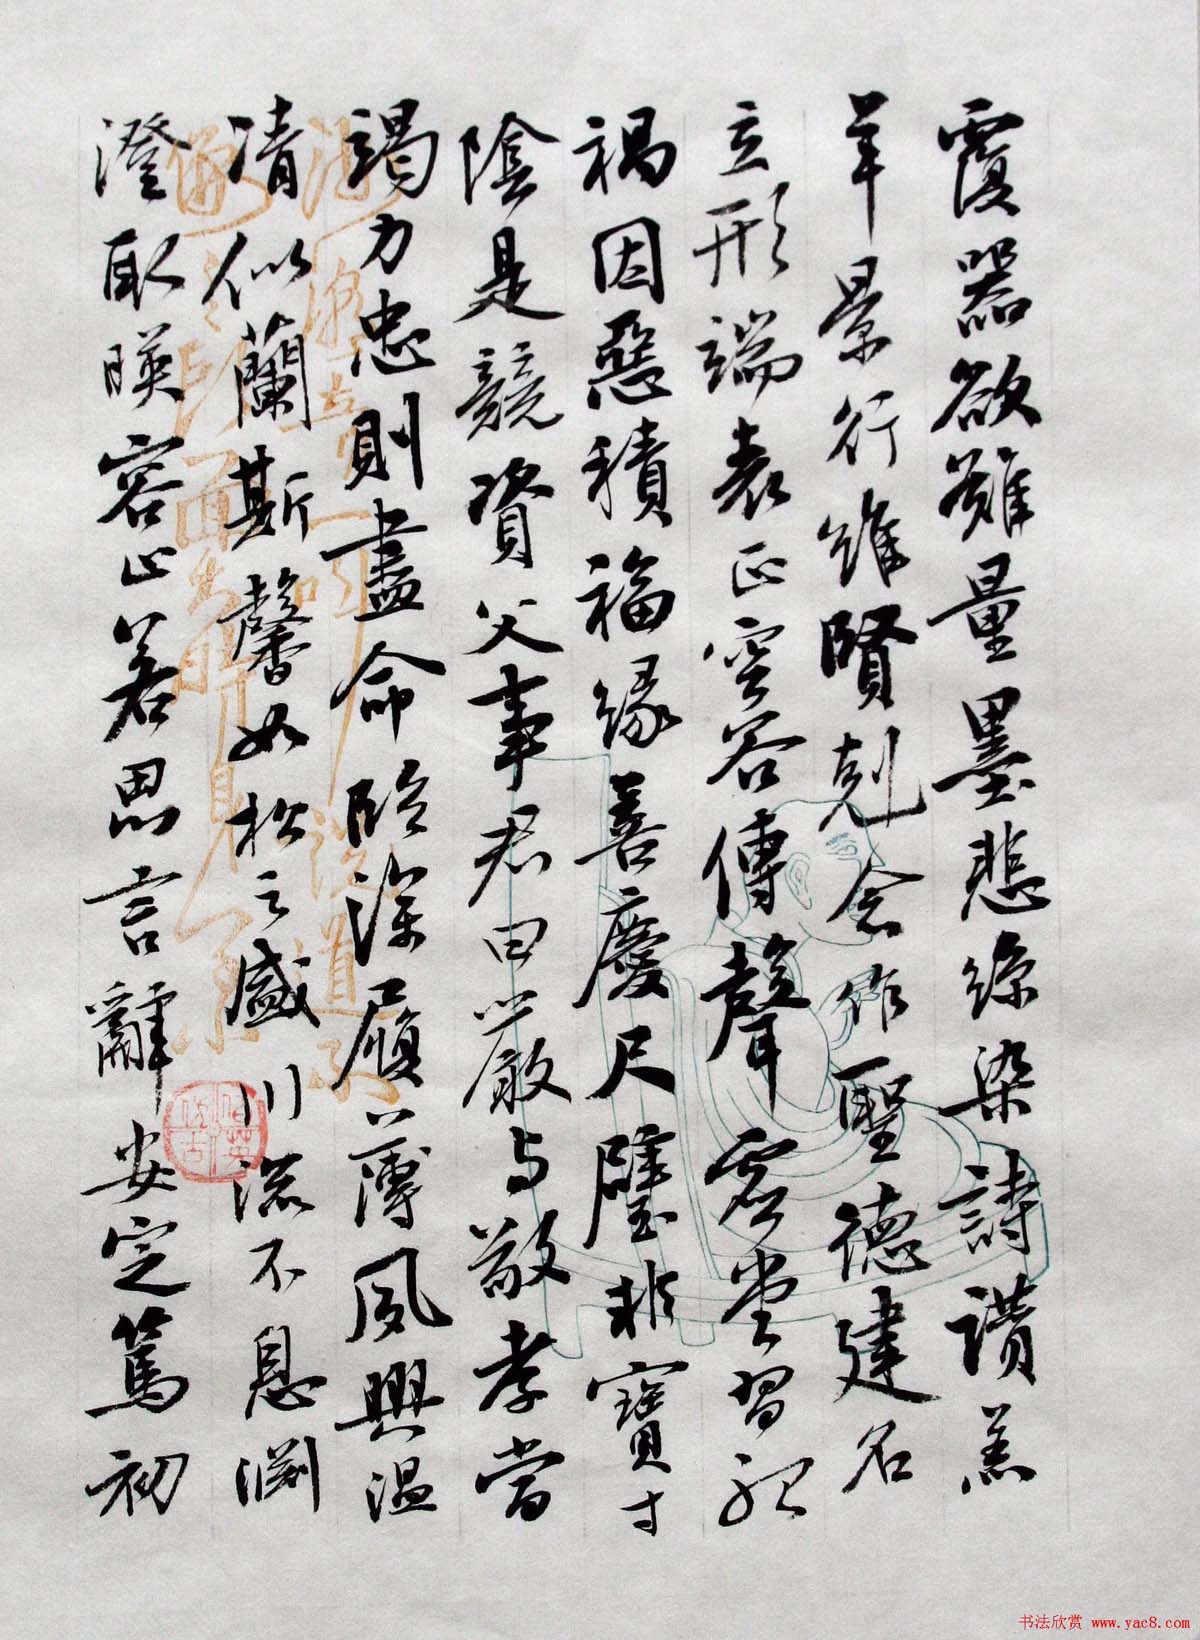 覆器欲難量墨悲絲染詩讚羔
羊景行維賢剋念作聖德建名
立形端表正空谷傳聲虛堂習聽
禍因惡積福緣善慶尺璧非寶寸
陰是競資父事君曰嚴与敬孝當
竭力忠則盡命臨深履薄夙興溫
凊似蘭斯馨如松之盛川流不息淵
澄取暎容止若思言辭安定篤初
书法欣赏 www.yac8.com